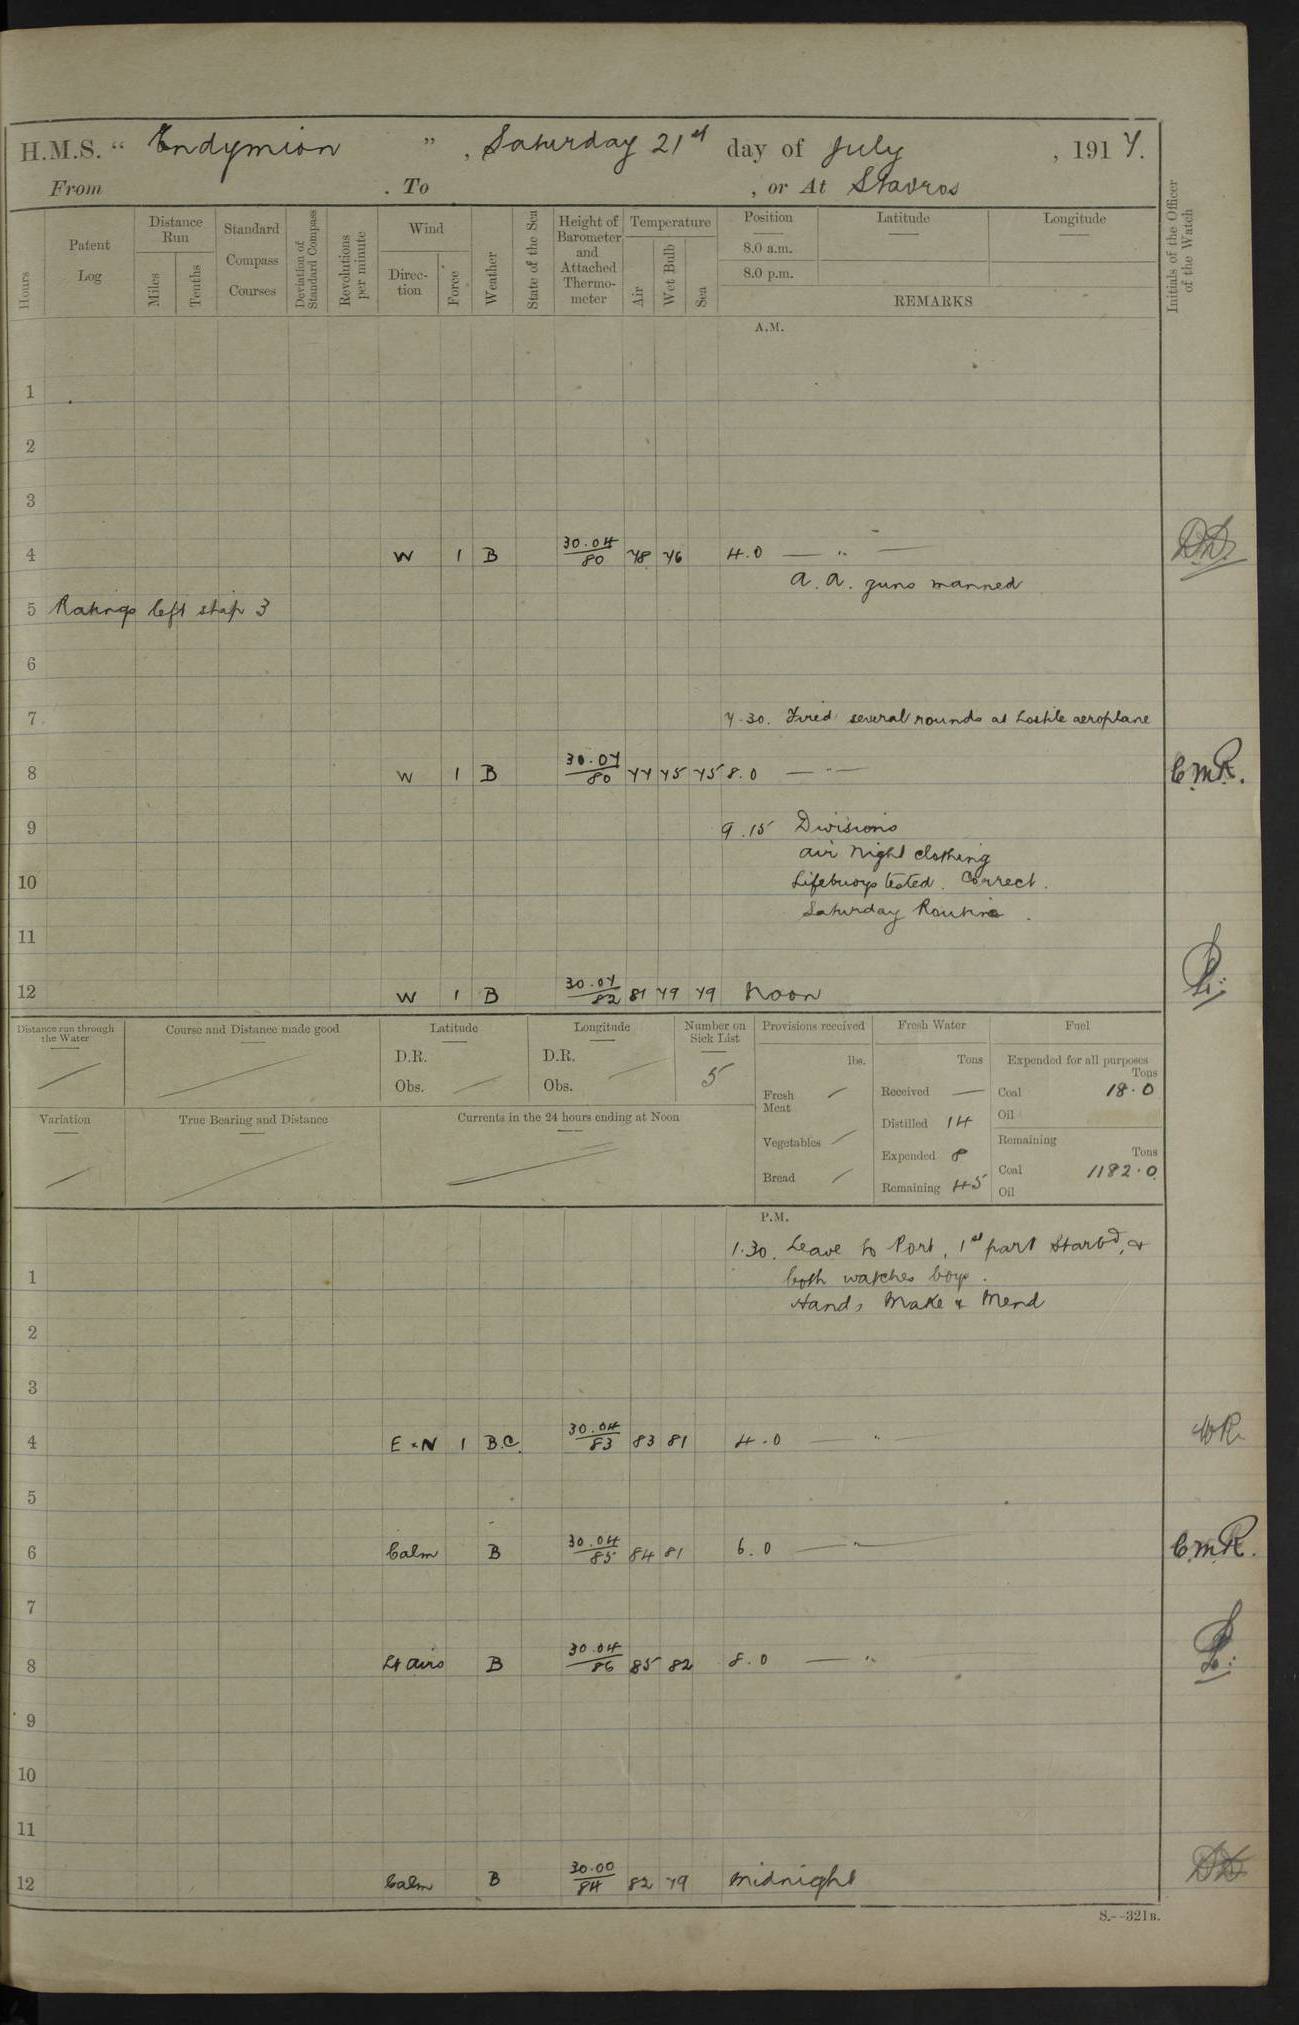 H.M.S. " Endymion ", Saturday 21st day of July, 1917.
From . To , or At Stavros
Hours
Patent Log
Distance Run
Miles
Tenths
Standard Compass Courses
Deviation of Standard Compass
Revolutions per minute
Wind
Direc-tion
Force
Weather
State of the Sea
Height of Barometer and Attached Thermo-meter
Temperature
Air
Wet Bulb
Sea
Position
8.0 a.m.
8.0 p.m.
Latitude
Longitude
REMARKS
Initials of the Officer of the Watch
A.M.
1
2
3
4 W 1 B 30.04/80 78 76 4.0 — " — D.D.
A.A. guns manned
5 Ratings left ship 3
6
7 7.30. Fired several rounds at hostile aeroplane
8 W 1 B 30.07/80 77 75 75 8.0 — " — C.M.R.
9 9.15 Divisions
air night clothing
10 Lifebuoys tested. Correct.
Saturday Routine.
11
12 W 1 B 30.07/82 81 79 79 Noon
Distance run through the Water
Course and Distance made good
Latitude
D.R.
Obs.
Longitude
D.R.
Obs.
Number on Sick List
5
Provisions received
lbs.
Fresh Meat
Vegetables
Bread
Fresh Water
Tons
Received —
Distilled 14
Expended 8
Remaining 45
Fuel
Expended for all purposes
Tons
Coal 18.0
Oil
Remaining
Tons
Coal 1182.0
Oil
Variation
True Bearing and Distance
Currents in the 24 hours ending at Noon
P.M.
1.30. Leave to Port, 1st part Starbd, &
1 both watches boys.
Hands Make & Mend
2
3
4 E x N 1 B.C. 30.04/83 83 81 4.0 — " —
5
6 Calm B 30.04/85 84 81 6.0 — " — C.M.R.
7
8 Lt airs B 30.04/86 85 82 8.0 — "
9
10
11
12 Calm B 30.00/84 82 79 Midnight DD
S.—321B.